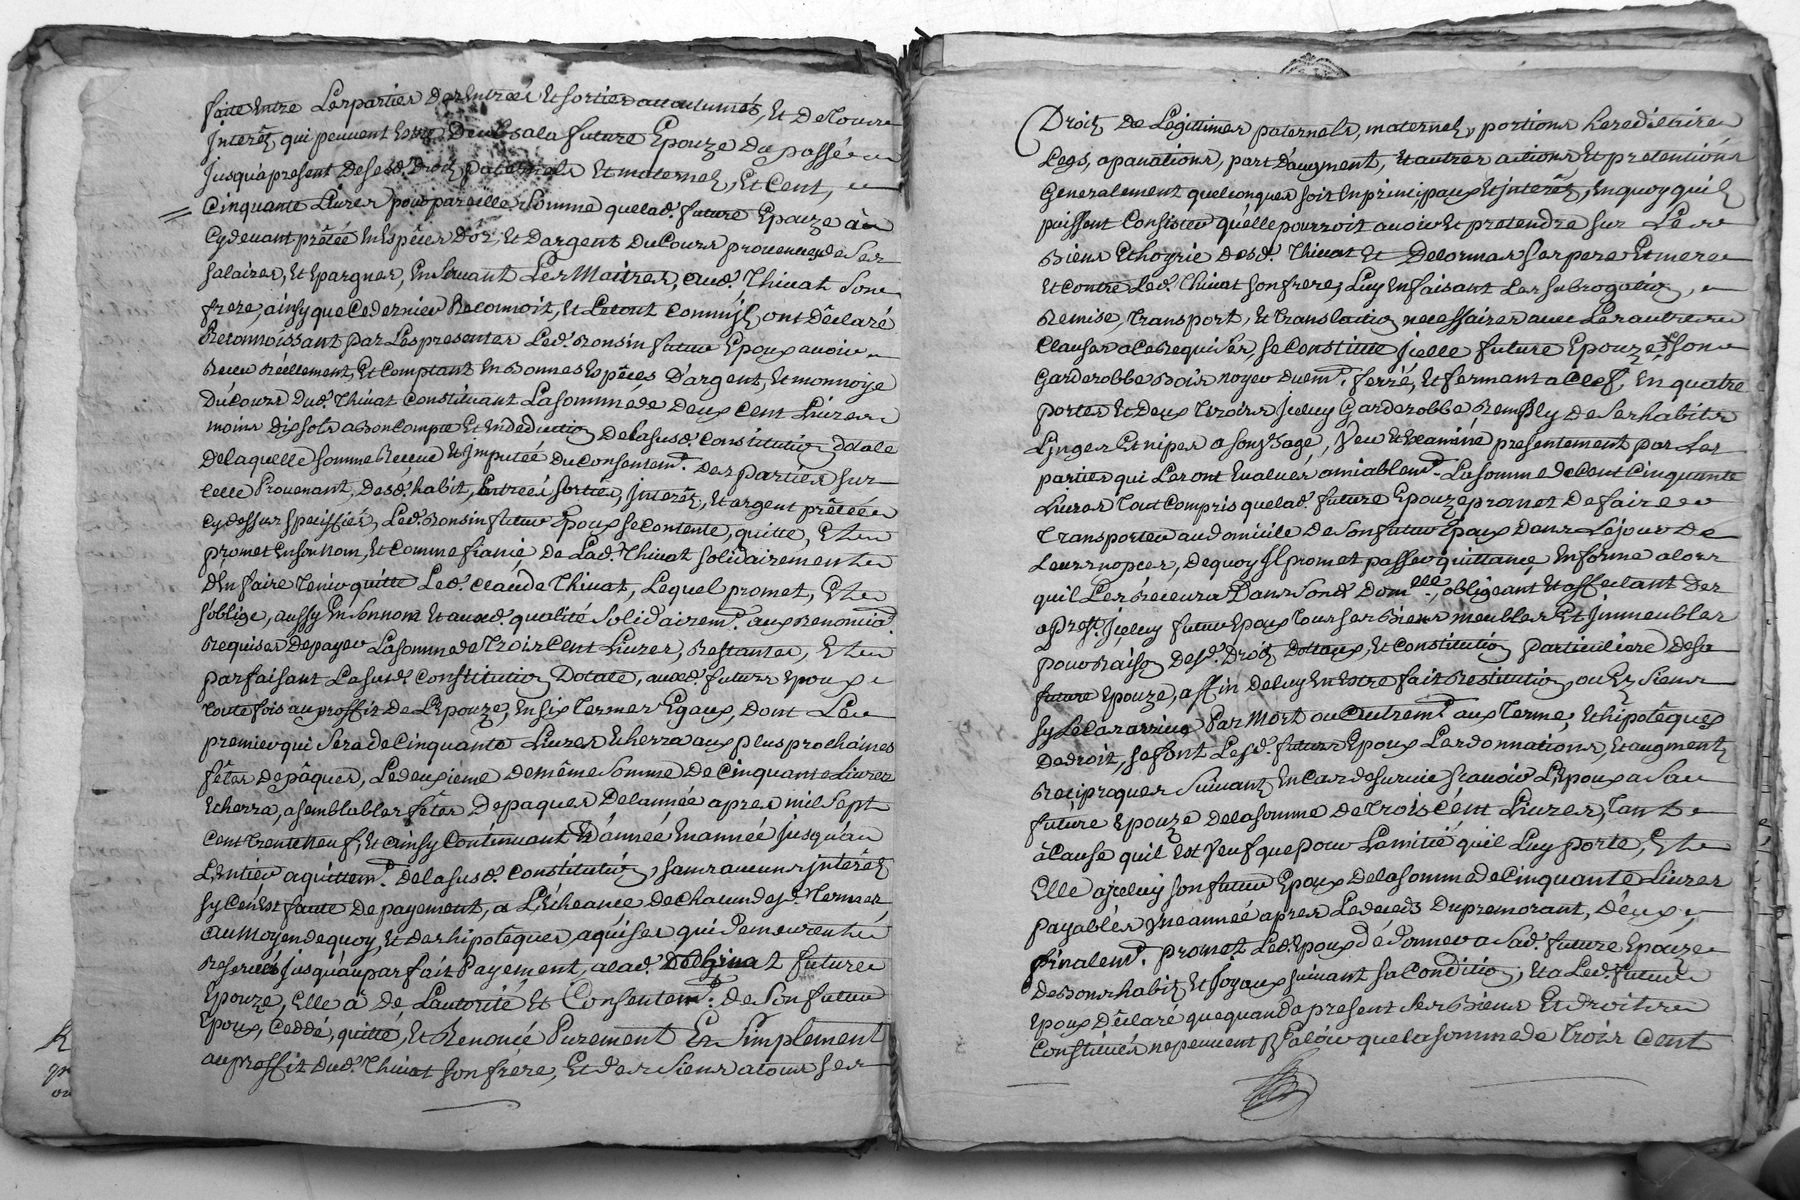 faite Entre Lesparties des Entreés Et sorties accoutumés, Et De Tous
Interêts qui peuvent Estre Deubs ala future Epouze Du passé
Jusqua present De sesd. Droits paternels Et maternels, Et Cent,
Cinquante Livres pour pareille Somme quelad. future Epouze à
Cydevant prêtée En Espêces D'or, Et D'argent Du Cours provenuës de Ses
salaires, Et Epargnes, En Servant Les Maitres, aud. Thivat Son
frere, ainsy que Ce dernier Reconnoit, Et Letout Ont Déclaré
Reconnoissant par Les presentes Led. Ronsin futur Epoux avoir
Receu Réellement, Et Comptant En Bonnes Espêces D'argent, Et monnoye
Du Cours Dud. Thivat Constituant La somme de Deux Cent Livres
moins Dix sols a Bon Compte Et En deduction De la susd. Constitution dotale
De laquelle somme Receue Et Imputée Du Consentem.t Des parties sur
Celle Provenant, Desd. habit, Entreés sorties, Interêts, Et argent prêtée
Cydessus speciffiés, Led. Ronsin futur Epoux se Contente, quitte, Et
promet En son Nom, Et Comme fiancé, De Lad. Thivat solidairement
d'En faire Tenir quitte Led. Claude Thivat, Lequel promet, Et
s'oblige, aussy En Son nom Et aud. qualité Solidairem.t aux Renonciá.
Requises De payer La somme de Trois Cent Livres, Restantes, Et
parfaisant La susd. Constitution Dotale, auxd. futurs Epoux
Toute fois au proffit De L'Epouze, En six Termes Egaux, Dont Le
premier qui sera de Cinquante Livres Echerra aux plus prochaines
fêtes De pâques, Le deuxieme De même Somme De Cinquante Livres
Echerra, a semblables fêtes De paques De L'année apres mil Sept
Cent trente Neuf, Et ainsy Continuant D'année En année jusqu'au
L'entier aquittem.t De la susd. Constitution, sans aucuns interêts
sy Cen'Est faute De payement, a L'Echeance De Chacun desd. Termes,
au Moyen de quoy, Et Des hipotêques, aquises qui Demeurent
Reservés Jusqu'au parfait Payement, a lad. Thivat future
Epouze, Elle a De L'autorité Et Consentem.t De Son futur
Epoux, Ceddé, quitté, Et Renoncé Purement Et Simplement
au proffit Dud. Thivat son frére, Et des siens a tous ses
Droits De Legittimes paternels, maternels, portions hereditaires
Legs, apanations, part D'augment, Et autres actions Et pretentions
Generalement quelconques soit En principaux Et Interêts, En quoy quils
puissent Consister qu'elle pourroit avoir Et pretendre sur Le
Biens Et hoyrie Desd. Thivat Et Delormas ses pere Et mere
Et Contre Led. Thivat son frere, Luy En faisant Les subrogation,
Remise, Transport, Et Translation necessaires avec Les autres
Clauses a Ce Requises, se Constitue Jcelle future Epouze, son
Garderobbe Bois noyer Duem.t ferré, Et fermant a Clef, En quatre
portes Et Deux Tiroirs Jceluy Garderobbe Remply De Ses habits
Linges Et nipes a son Usage, Veu Et Examiné presentement par Les
parties qui Les ont Evalués amiablem.t La somme de Cent Cinquante
Livres Tout Compris quelad. future Epouze promet De faire
Transporter au domicile De son futur Epoux Dans Le jour De
Leurs nopces, De quoy Il promet passer quittance En forme alors
qu'il Les Recevra Dans Sond. Dom.lle, obligeant Et affectant Des
apres.t Jceluy futur Epoux Tous ses Biens meubles Et Immeubles
pour Raison Desd. Droits Dottaux, Et Constitution particuliere De sa
future Epouze, affin De luy En Estre fait Restitution, ou Es Siens
sy Le Cas arrive Par Mort ou autrem.t aux Terme, Et hipotêques
De droit, se font Lesd. futurs Epoux Les donnations, Et augments
Reciproques Suivants En Cas de survie scavoir L'Epoux a Sa
future Epouze De la somme De Trois Cent Livres, Tant
à Cause qu'il Est Veuf que pour L'amitié qu'il Luy porte, Et
Elle a Jceluy son futur Epoux De la somme De Cinquante Livres
payables Une année apres Le deceds Du premorant, D'eux
finalem.t promet Led. Epoux de Donner a Sad. future Epouze
De Bons habits Et Joyaux suivant sa Condition, Et a Led. futur
Epoux Déclaré que quand a present Ses Biens Et droits
Constitués ne peuvent valoir que la somme de Trois Cent